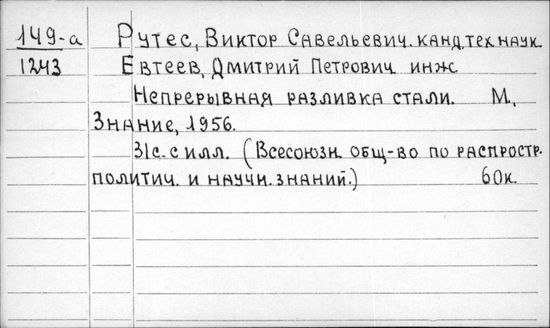 149-а Рутес, Виктор Савельевич. канд. тех. наук
1243 Евтеев, Дмитрий Петрович инж
Непрерывная разливка стали. М,
Знание, 1956.
31с. с илл. (Всесоюзн. общ-во по распростр.
политич. и научн. знаний.) 60к.